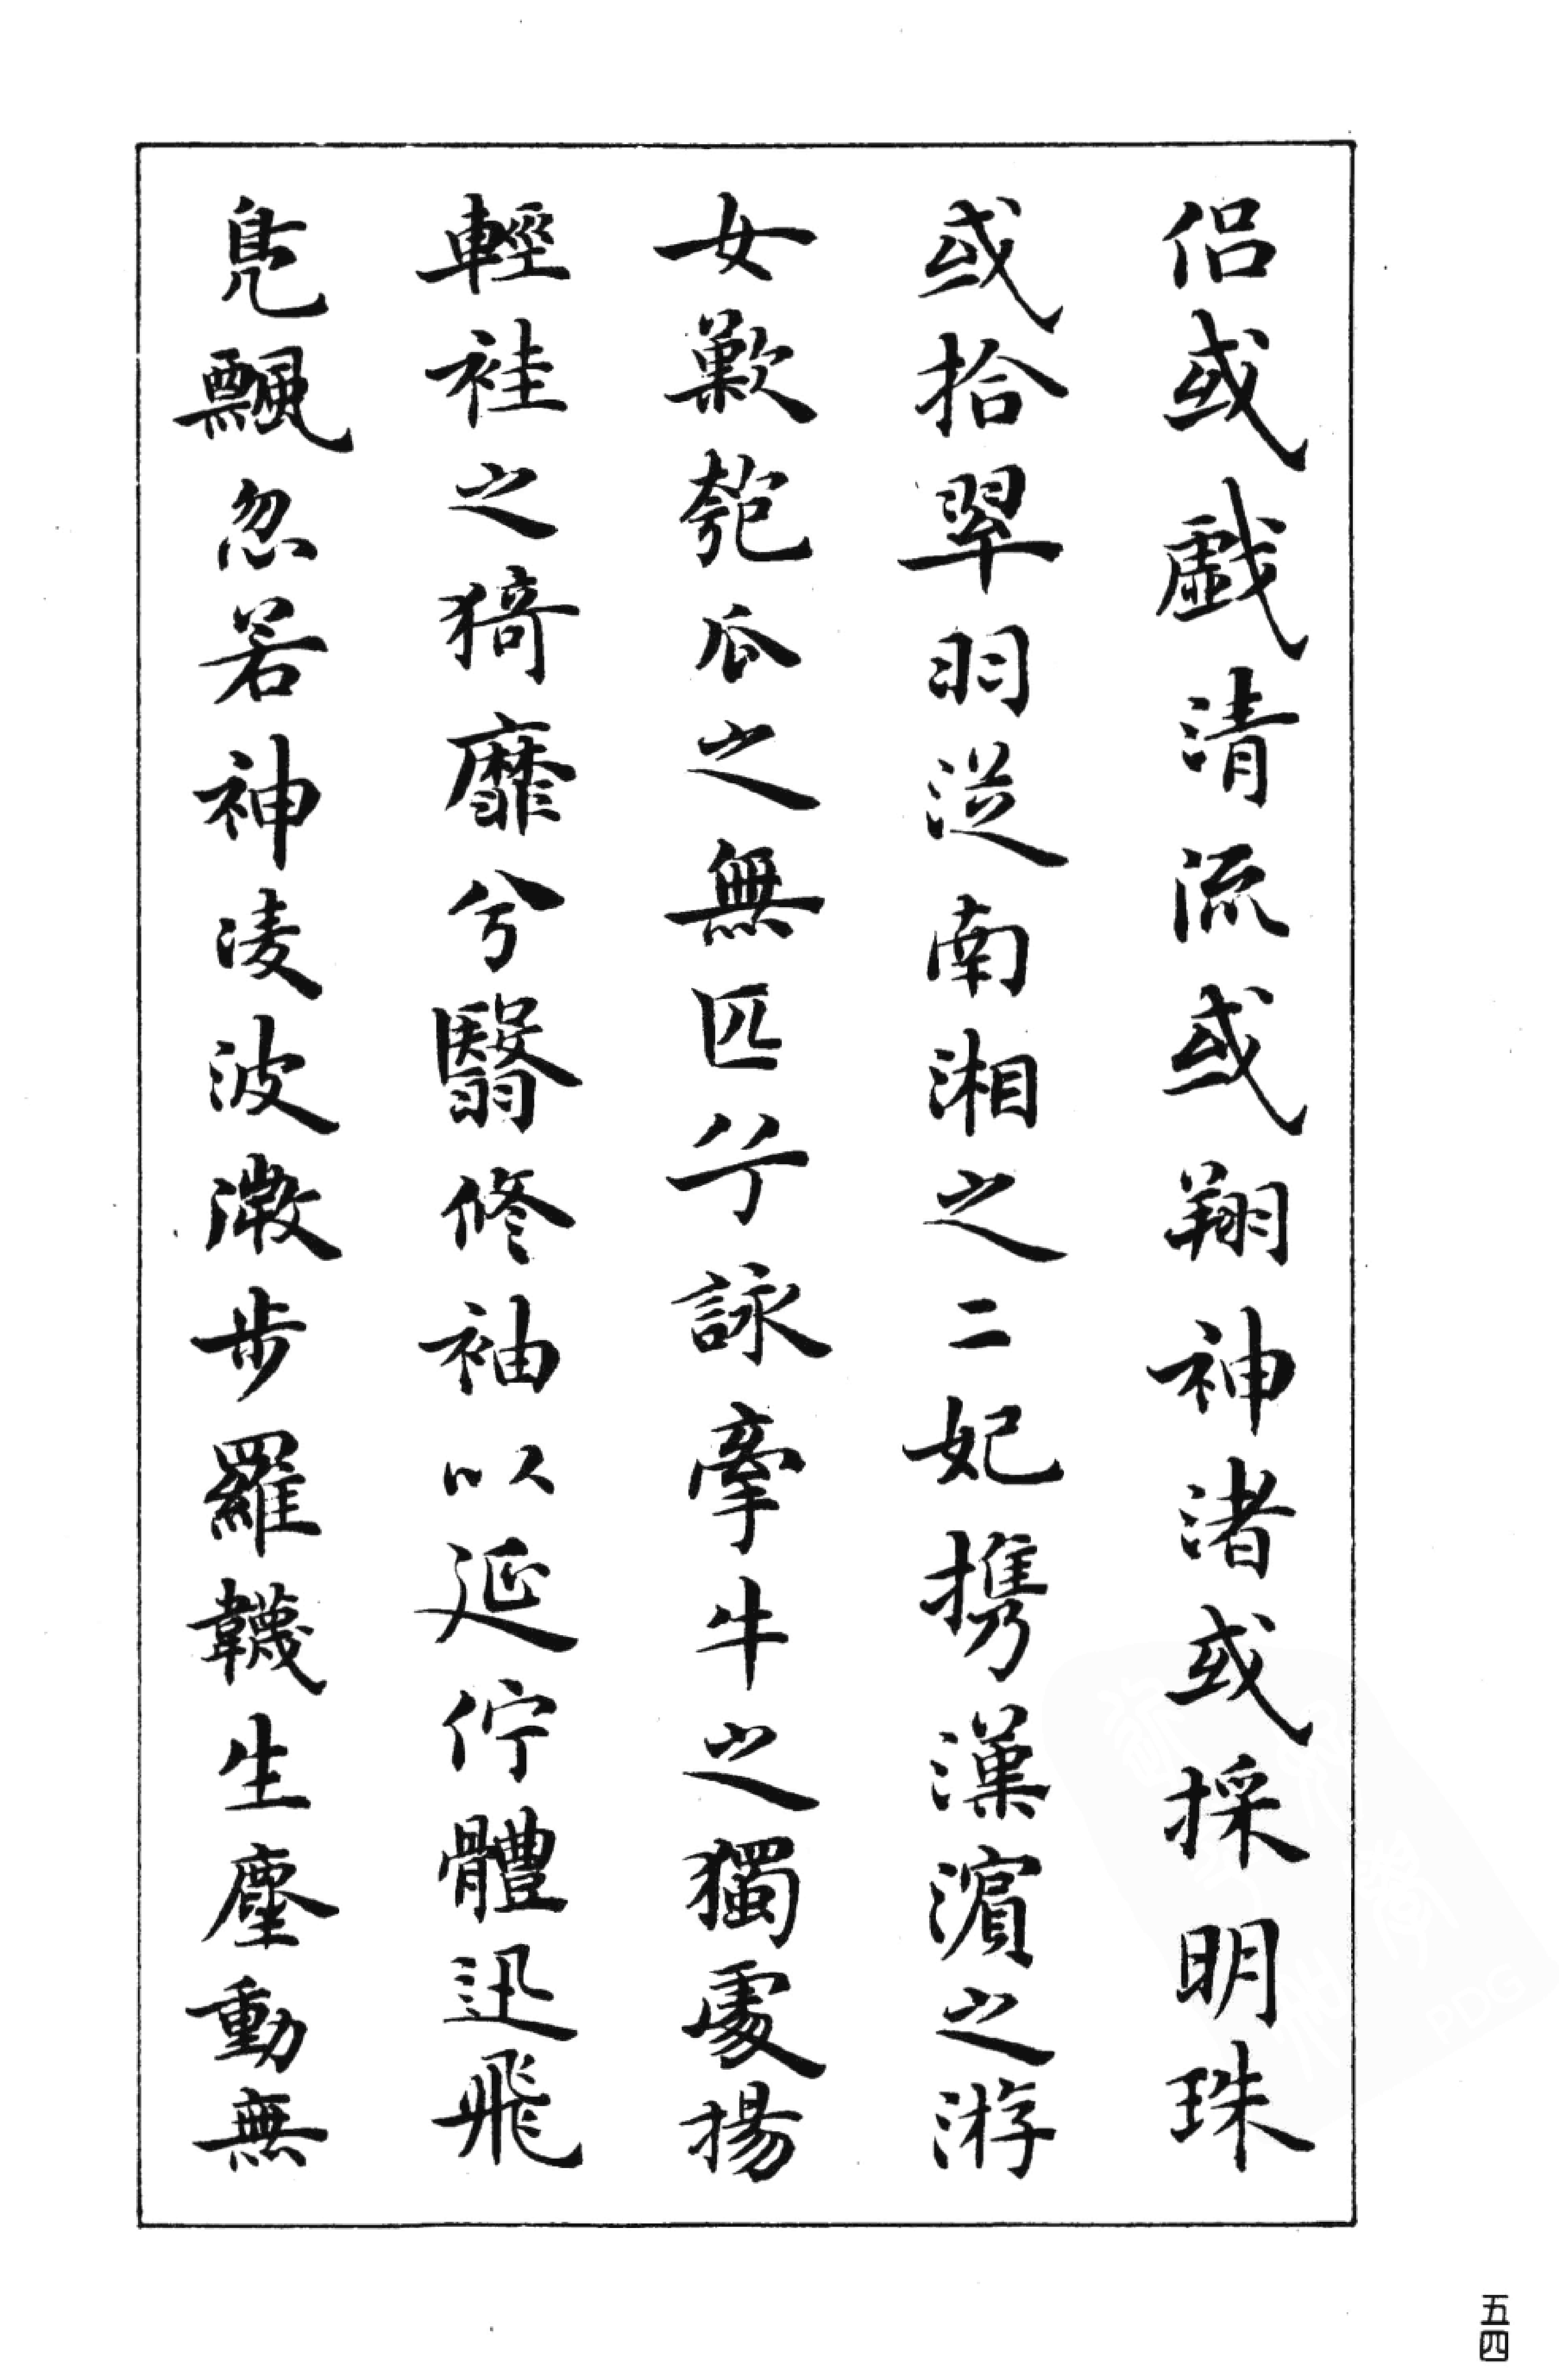 侣或戲清流或翔神渚或採明珠
或拾翠羽從南湘之二妃携漢濱之游
女歎匏瓜之無匹兮詠牽牛之獨處揚
輕袿之猗靡兮翳修袖以延佇體迅飛
鳧飄忽若神凌波微步羅韈生塵動無
五四